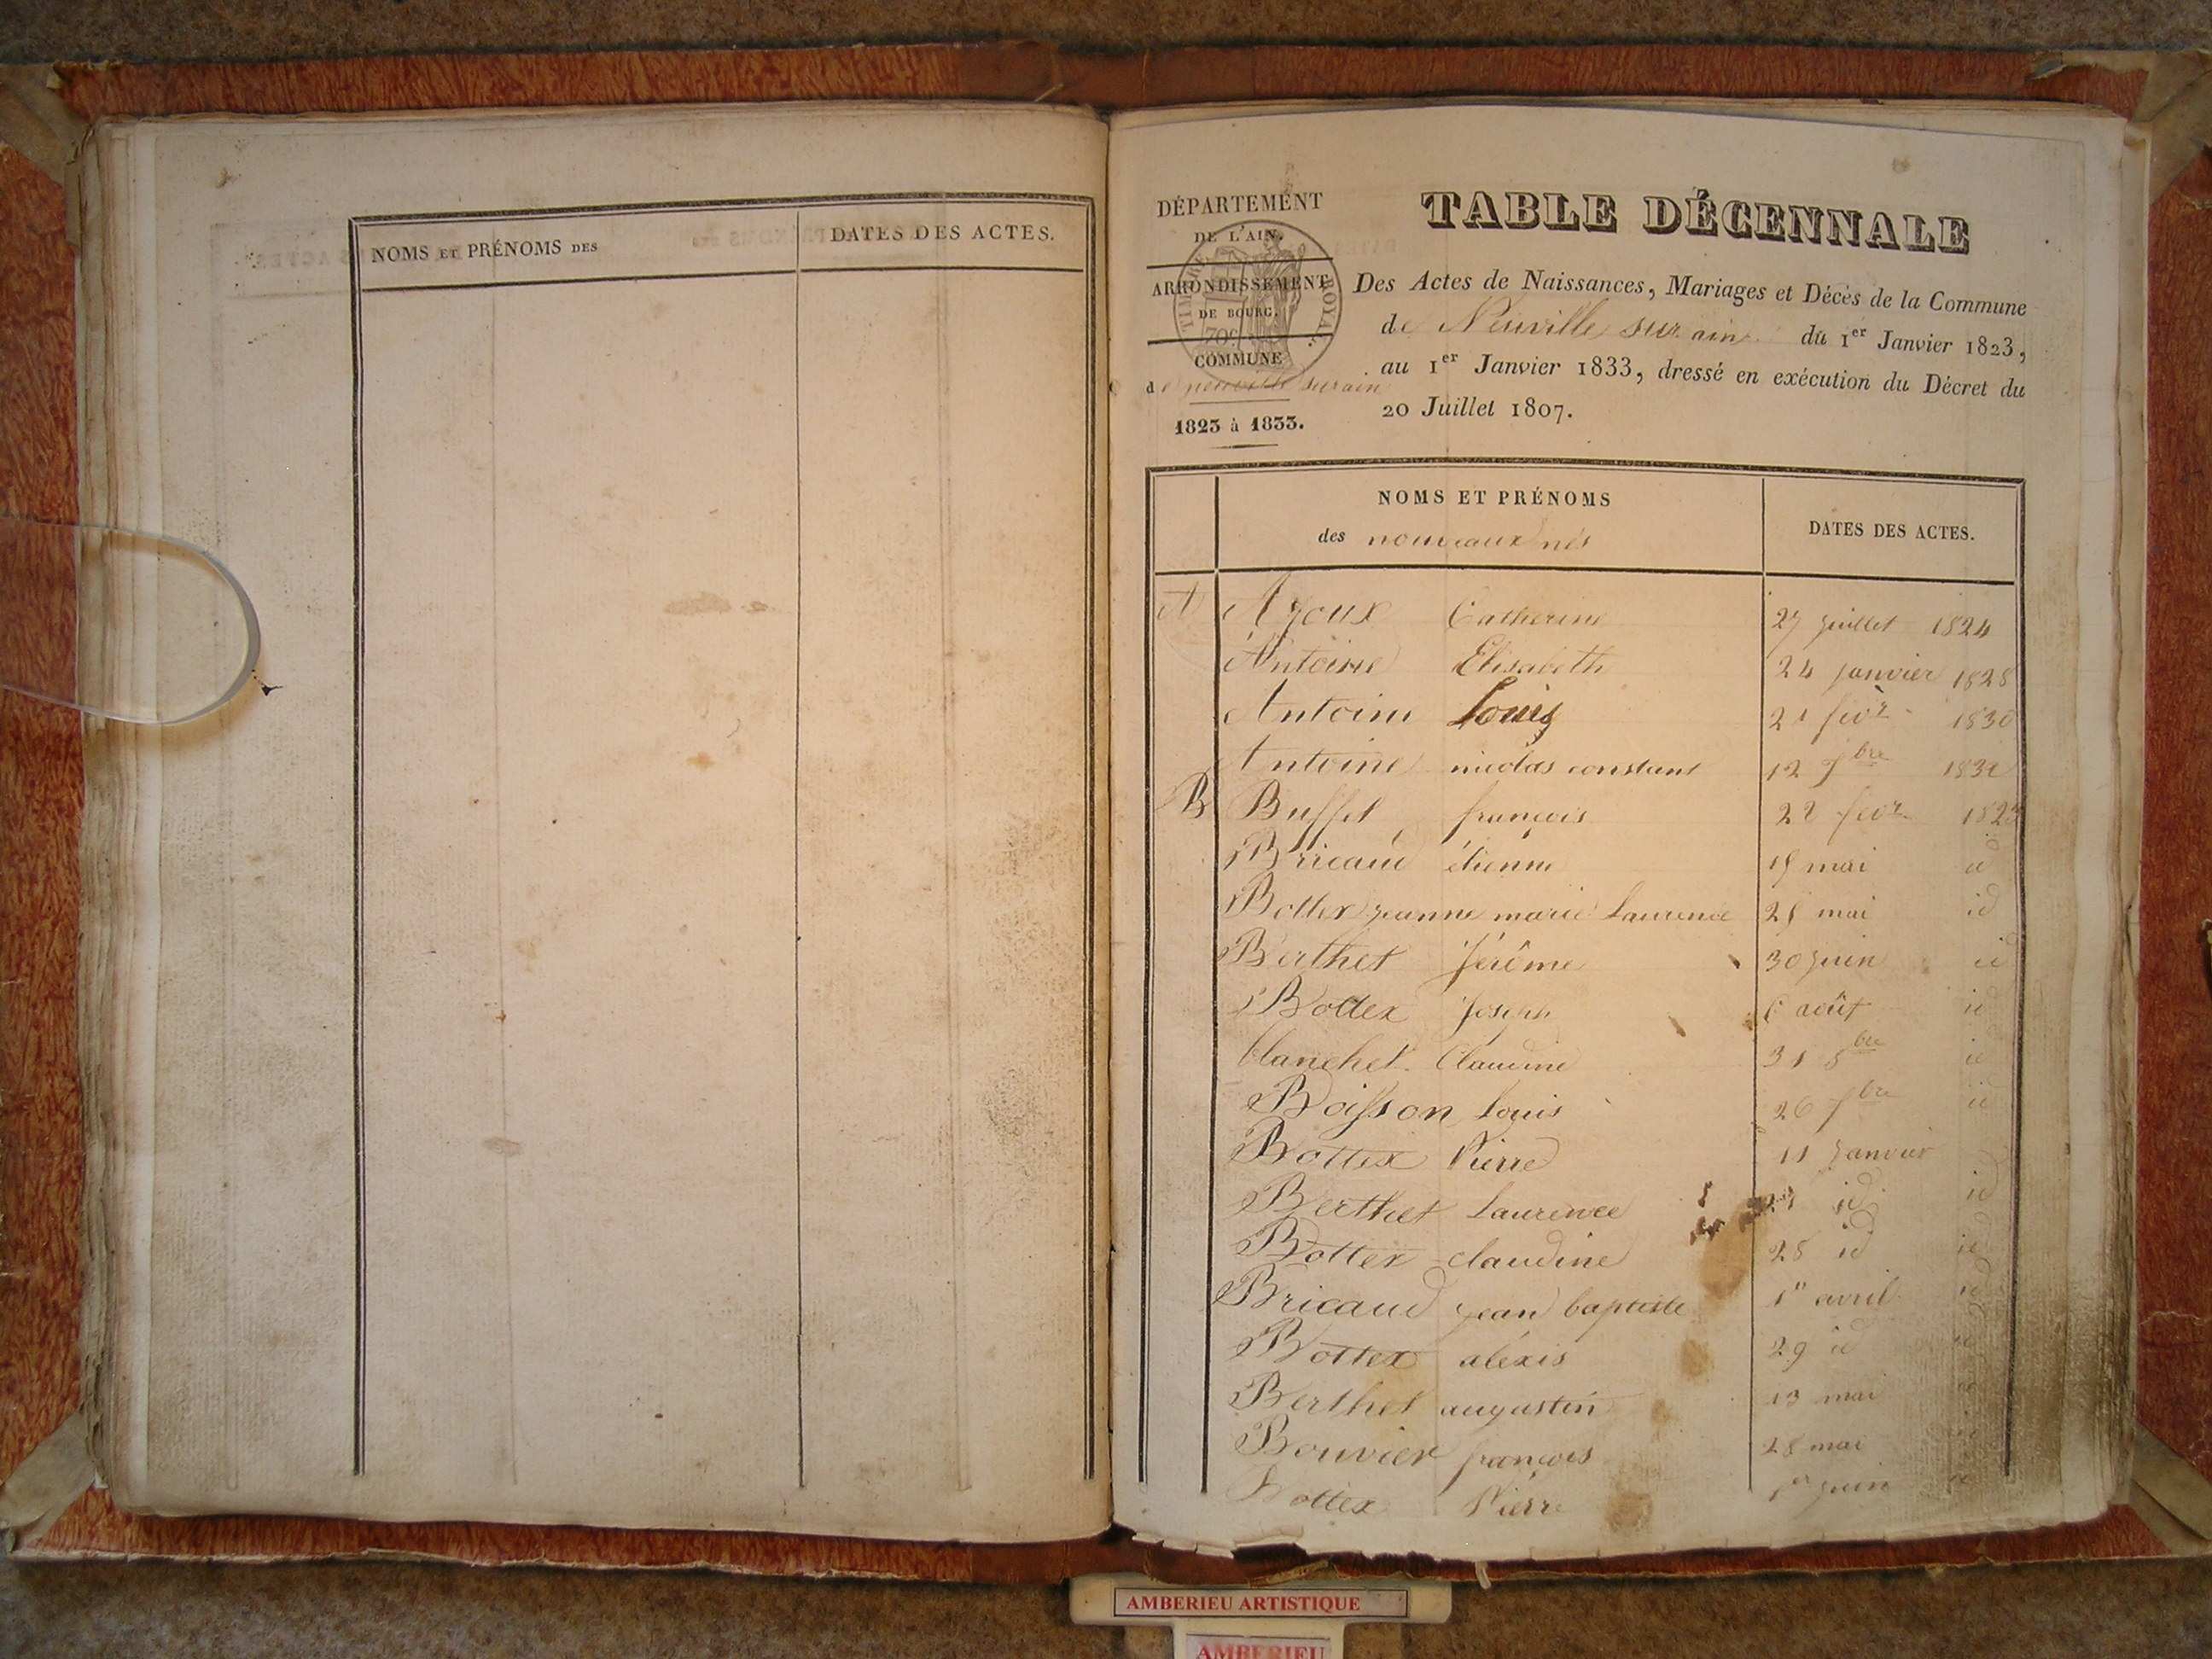 NOMS ET PRÉNOMS DES
DATES DES ACTES.
DÉPARTEMENT
DE L'AIN.
ARRONDISSEMENT
DE BOURG.
COMMUNE
de neuville sur ain
1823 à 1833.
TIMBRE ROYAL
70c
TABLE DÉCENNALE
Des Actes de Naissances, Mariages et Décès de la Commune
de Neuville sur ain du 1er Janvier 1823,
au 1er Janvier 1833, dressé en exécution du Décret du
20 Juillet 1807.
NOMS ET PRÉNOMS
des nouveaux nés
DATES DES ACTES.
A Ajoux Catherine 27 juillet 1824
Antoine Elisabeth 24 janvier 1828
Antoine Louis 21 fevr 1830
Antoine nicolas constant 12 7bre
B Buffet françois 22 fevr 1823
Bricaud étienne mai id
Bottex jeanne marie Laurence mai id
Berthet Jérôme 30 juin id
Bottex Joseph 6 août id
blanchet Claudine 31 8bre id
Boisson Louis 26 7bre id
Bottex Pierre 11 Janvier
Berthet Laurence id id
Bottex claudine 25 id id
Bricaud jean baptiste 1er avril id
Bottex alexis 29 id id
Berthet augustin 13 mai id
Bouvier françois 28 mai id
Bottex Pierre 1er juin id
AMBERIEU ARTISTIQUE
AMBERIEU